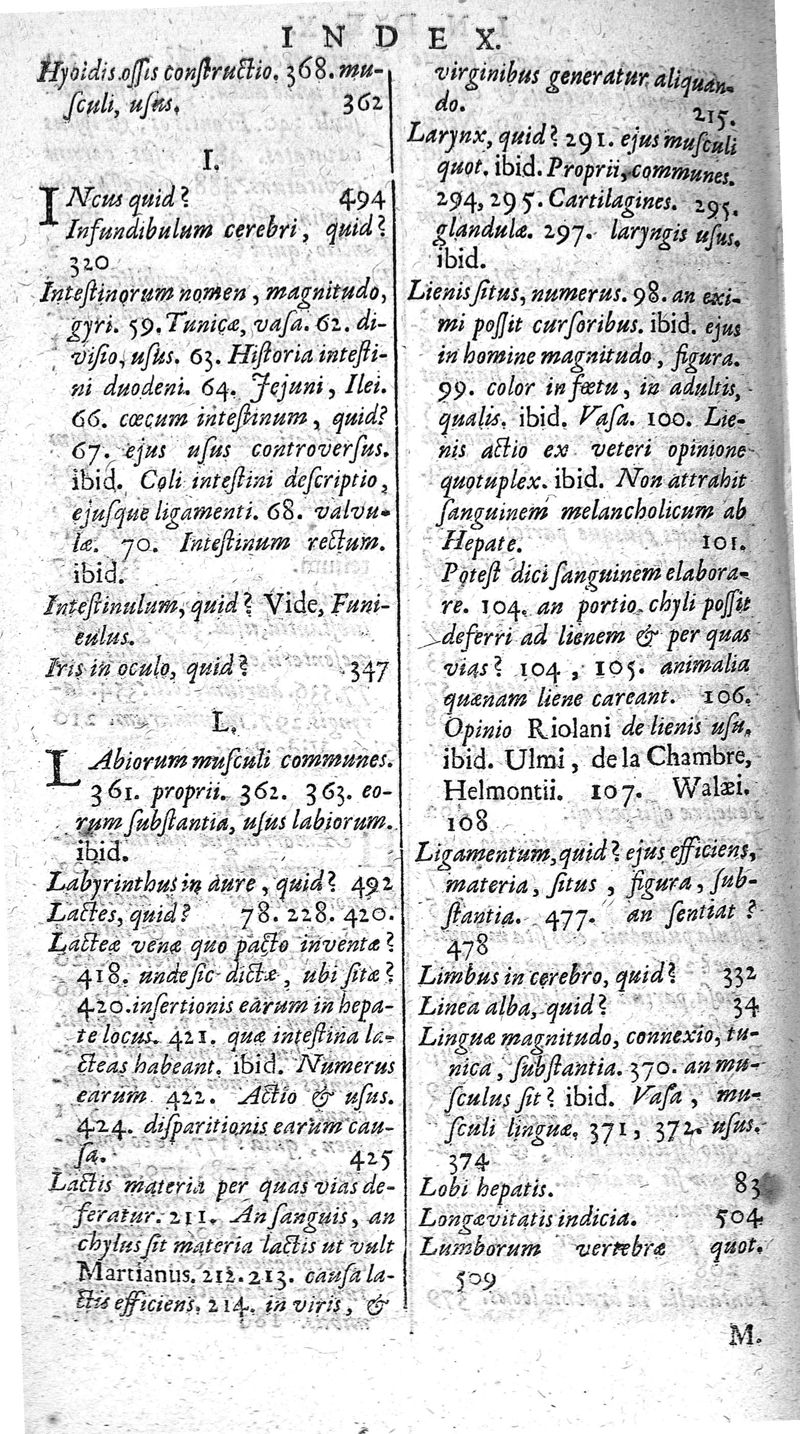 INDEX.
Hyoidis ossis constructio. 368. mu-
sculi, usus. 362
I.
INcus quid? 494
Infundibulum cerebri, quid?
320
Intestinorum nomen, magnitudo,
gyri. 59. Tunicæ, vasa. 62. di-
visio, usus. 63. Historia intesti-
ni duodeni. 64. Jejuni, Ilei.
66. cœcum intestinum, quid?
67. ejus usus controversus.
ibid. Coli intestini descriptio,
ejusque ligamenti. 68. valvu-
læ. 70. Intestinum rectum.
ibid.
Intestinulum, quid? Vide, Funi-
culus.
Iris in oculo, quid? 347
L.
LAbiorum musculi communes.
361. proprii. 362. 363. eo-
rum substantia, usus labiorum.
ibid.
Labyrinthus in aure, quid? 492
Lactes, quid? 78. 228. 420.
Lacteæ venæ quo pacto inventæ?
418. unde sic dictæ, ubi sitæ?
420. insertionis earum in hepa-
te locus. 421. quæ intestina la-
cteas habeant. ibid. Numerus
earum 422. Actio & usus.
424. disparitionis earum cau-
sa. 425
Lactis materia per quas vias de-
feratur. 211. An sanguis, an
chylus sit materia lactis ut vult
Martianus. 212. 213. causa la-
ctis efficiens. 214. in viris, &
virginibus generatur aliquan-
do. 215.
Larynx, quid? 291. ejus musculi
quot. ibid. Proprii, communes.
294, 295. Cartilagines. 295.
glandulæ. 297. laryngis usus.
ibid.
Lienis situs, numerus. 98. an exi-
mi possit cursoribus. ibid. ejus
in homine magnitudo, figura.
99. color in fœtu, in adultis,
qualis. ibid. Vasa. 100. Lie-
nis actio ex veteri opinione
quotuplex. ibid. Non attrahit
sanguinem melancholicum ab
Hepate. 101.
Potest dici sanguinem elabora-
re. 104. an portio chyli possit
deferri ad lienem & per quas
vias? 104, 105. animalia
quænam liene careant. 106.
Opinio Riolani de lienis usu.
ibid. Ulmi, de la Chambre,
Helmontii. 107. Walæi.
108
Ligamentum, quid? ejus efficiens,
materia, situs, figura, sub-
stantia. 477. an sentiat?
478
Limbus in cerebro, quid? 332
Linea alba, quid? 34
Linguæ magnitudo, connexio, tu-
nica, substantia. 370. an mu-
sculus sit? ibid. Vasa, mu-
sculi linguæ. 371, 372. usus.
374
Lobi hepatis. 83
Longævitatis indicia. 504
Lumborum vertebræ quot.
509
M.